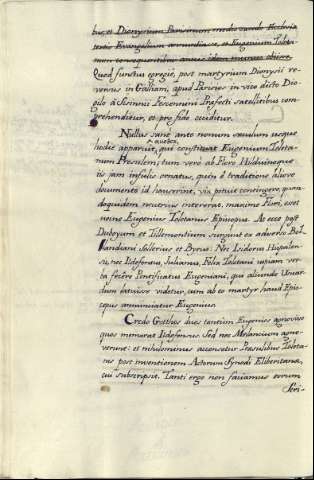 bus, et Dionysium Parisinum modo
tertio Evangelium et Eugenium Toleta-
num
Quod functus egregie, post martyrium Dionysii re-
versus in Galliam, apud Parisios in vico dicto Dio-
gilo à Sisinnii Fescennini Præfecti satellitibus com-
prehenditur, et pro fide occiditur.
Nullus sanè ante nonum sæculum usque
hodie apparuit auctor, qui constituat Eugenium Toleta-
num Præsulem; tum verò ab Floro Hilduinoque
iis jam infulis ornatus, quin è traditione aliove
documento id hauserint, via potuit contingere, quan-
doquidem neutrius intererat, maximè Flori, esset
necne Eugenius Toletanus Episcopus. At ecce post
et Tillemontium surgunt ex adverso Bol-
landiani Sollerius et Byeus: Nec Isidorus Hispalen-
sis, nec Ildefonsus, Julianus, Felix Toletani usquam ver-
ba fecere Pontificatus Eugeniani, qui aliunde Usuar-
dum latuisse videtur, cum ab eo martyr haud Epis-
copus annuncietur Eugenius.
Credo Gotthos duos tantùm Eugenios agnovisse
quos memorat Ildefonsus: Sed nec Melantium agno-
verunt: et nihilominus accensetur Præsulibus Toleta-
nis post inventionem Actorum Synodi Eliberitanæ,
cui subscripsit. Tanti ergo non faciamus eorum